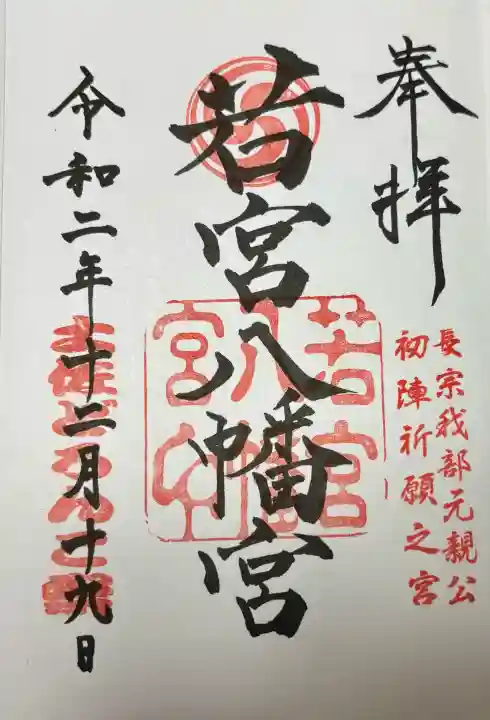 奉拝
長宗我部元親公
初陣祈願之宮
若宮八幡宮
若宮
八幡
宮
土佐どろんこ祭
令和二年十二月十九日